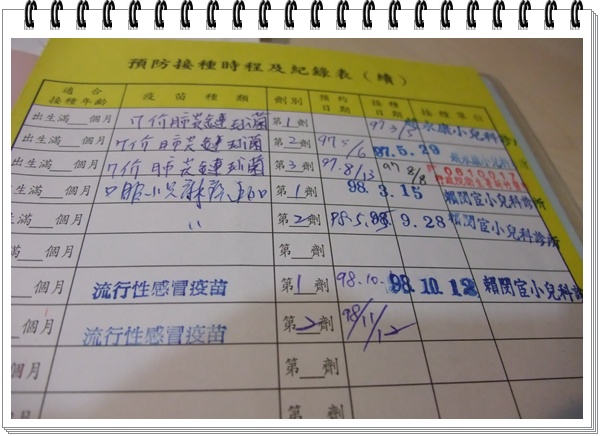 預防接種時程及紀錄表(續)
適合接種年齡 疫苗種類 劑別 預約日期 接種日期 接種單位
出生滿__個月 7价肺炎鏈球菌 第1劑 97.3/5 小兒科診
出生滿__個月 7价肺炎鏈球菌 第2劑 97.5/6 97.5.29 小兒科
出生滿__個月 7价肺炎鏈球菌 第3劑 97.8/13 97.8/8 0810017
生滿__個月 口服小兒麻 第1劑 98.3.15 賴閔宦小兒科診所
滿__個月 〃 第2劑 98.5. 9.28 賴閔宦小兒科診所
__個月 第__劑
個月 流行性感冒疫苗 第1劑 98.10. 98.10.12 賴閔宦小兒科診
個月 流行性感冒疫苗 第2劑 98/11/12
個月 第__劑
月 第__劑